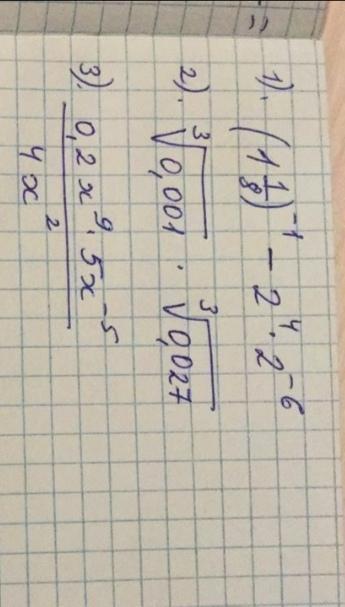 1). (1 1/8)^-1 - 2^4 · 2^-6
2). ∛0,001 · ∛0,027
3). 0,2x^9 · 5x^-5
4x^2